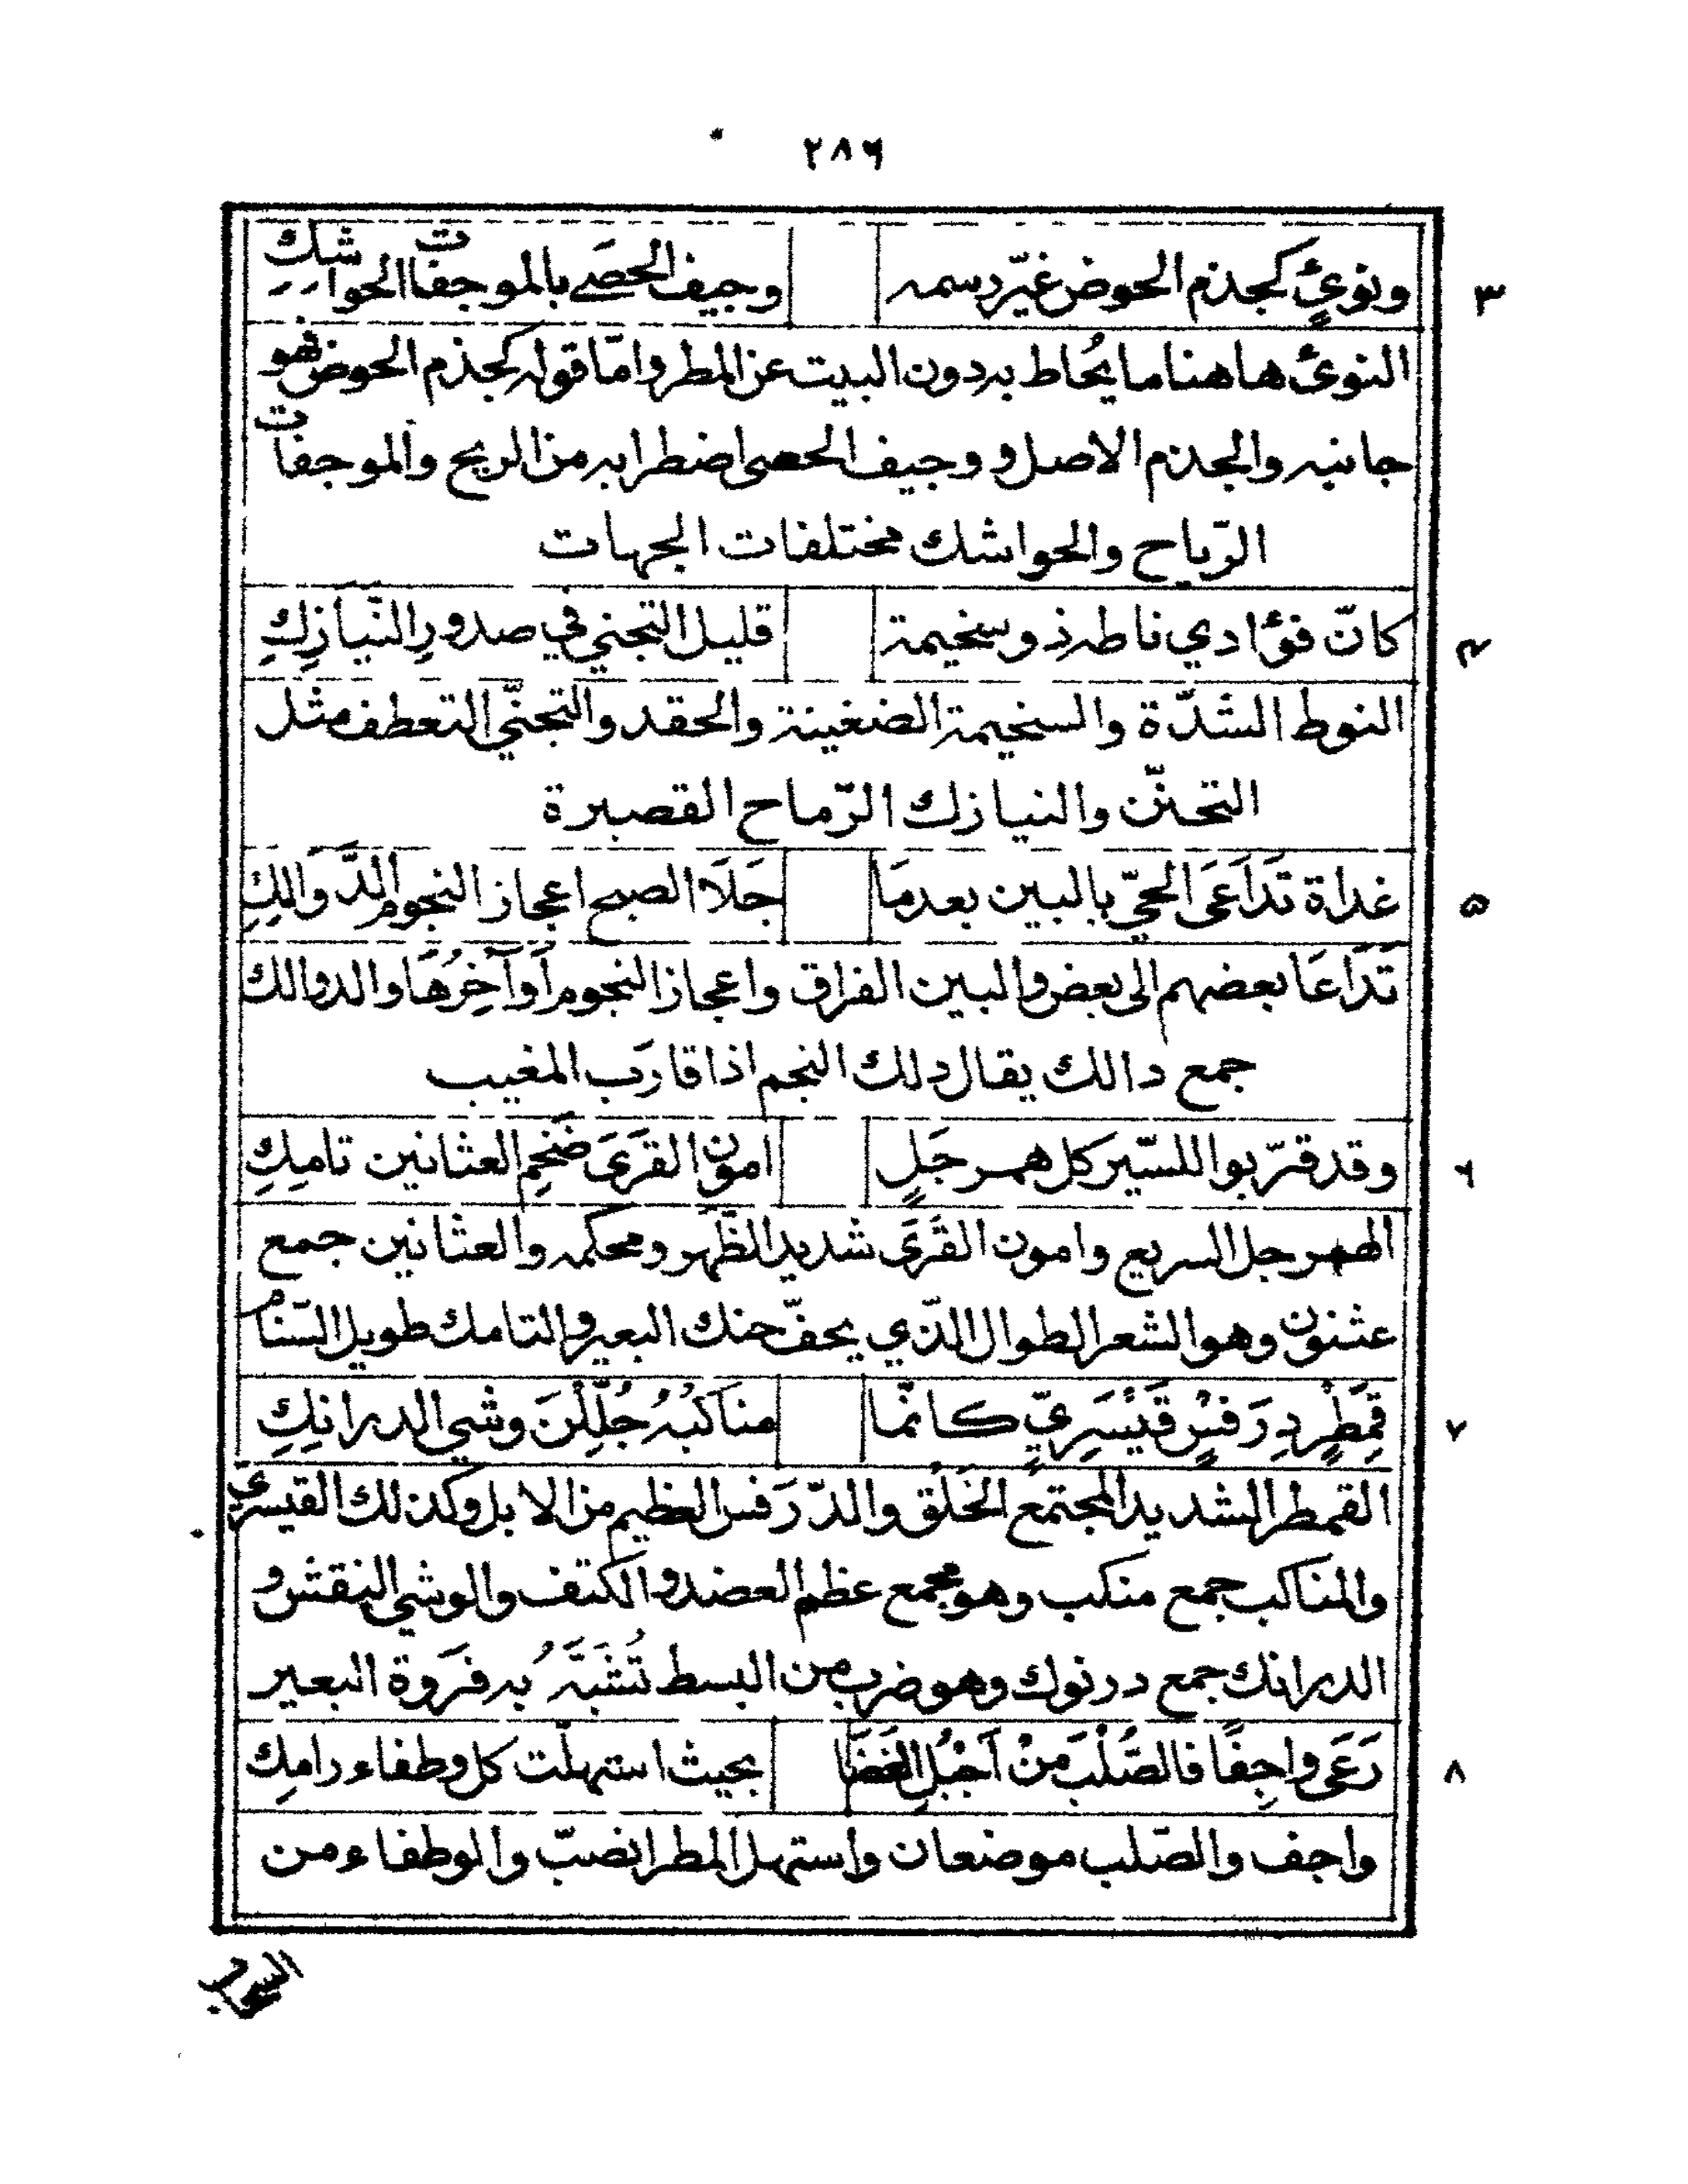 ٢٨٦
٣ ونوئٍ كجذم الحوض غيّر رسمه وجيف الحصى بالموجفات الحواشكِ
النوئ هاهنا ما يُحاط به دون البيت عن المطر وامّا قوله كجذم الحوض فهو
جانبه والجذم الاصل و وجيف الحصى اضطرابه من الريح والموجفات
الرّياح والحواشك مختلفات الجهات
٤ كانّ فؤادي ناطه ذو سخيمة قليل التجني في صدورِ النّيازِكِ
النوط الشدّة والسخيمة الضغينة والحقد والتجنّي التعطف مثل
التحنّن والنيازك الرّماح القصيرة
٥ غداة تَدَاعَى الحيّ بالبين بعدمَا جَلَا الصبح اعجاز النجوم الدَّوَالِكِ
تَدَاعَا بعضهم الى بعض والبين الفراق واعجاز النجوم أَوَآخِرُهَا والدوالك
جمع دالك يقال دلك النجم اذا قارَب المغيب
٦ وقد قرّبوا للسّير كل همرجَلٍ امون القَرَىَ ضَخِم العثانين تامِكِ
الهمرجل السريع وامون القَرَىَ شديد الظَّهر ومحكمه والعثانين جمع
عثنون وهو الشعر الطوال الذّي يحفّ حنك البعير والتامك طويل السّنام
٧ قِمَطْرٍ دِرَفسٍ قَيْسَرِيٍّ كانّما مناكبُهُ جُلِّلْنَ وشي الدرانِكِ
القمطر الشديد المجتمع الخَلْق والدّرَفس العظيم من الابل وكذلك القيسري
والمناكب جمع منكب وهو مجمع عظم العضد والكتف والوشي النقش و
الدرانك جمع درنوك وهو ضرب من البسط تُشَبَّهُ به فَرَوة البعير
٨ رَعَى واجِفًا فالصُّلْبَ مِنْ آجْبُلِ الغَضَا بحيث استهلّت كل وطفاء رامِكِ
واجف والصّلب موضعان واستهل المطر انصبّ والوطفاء من
السحاب